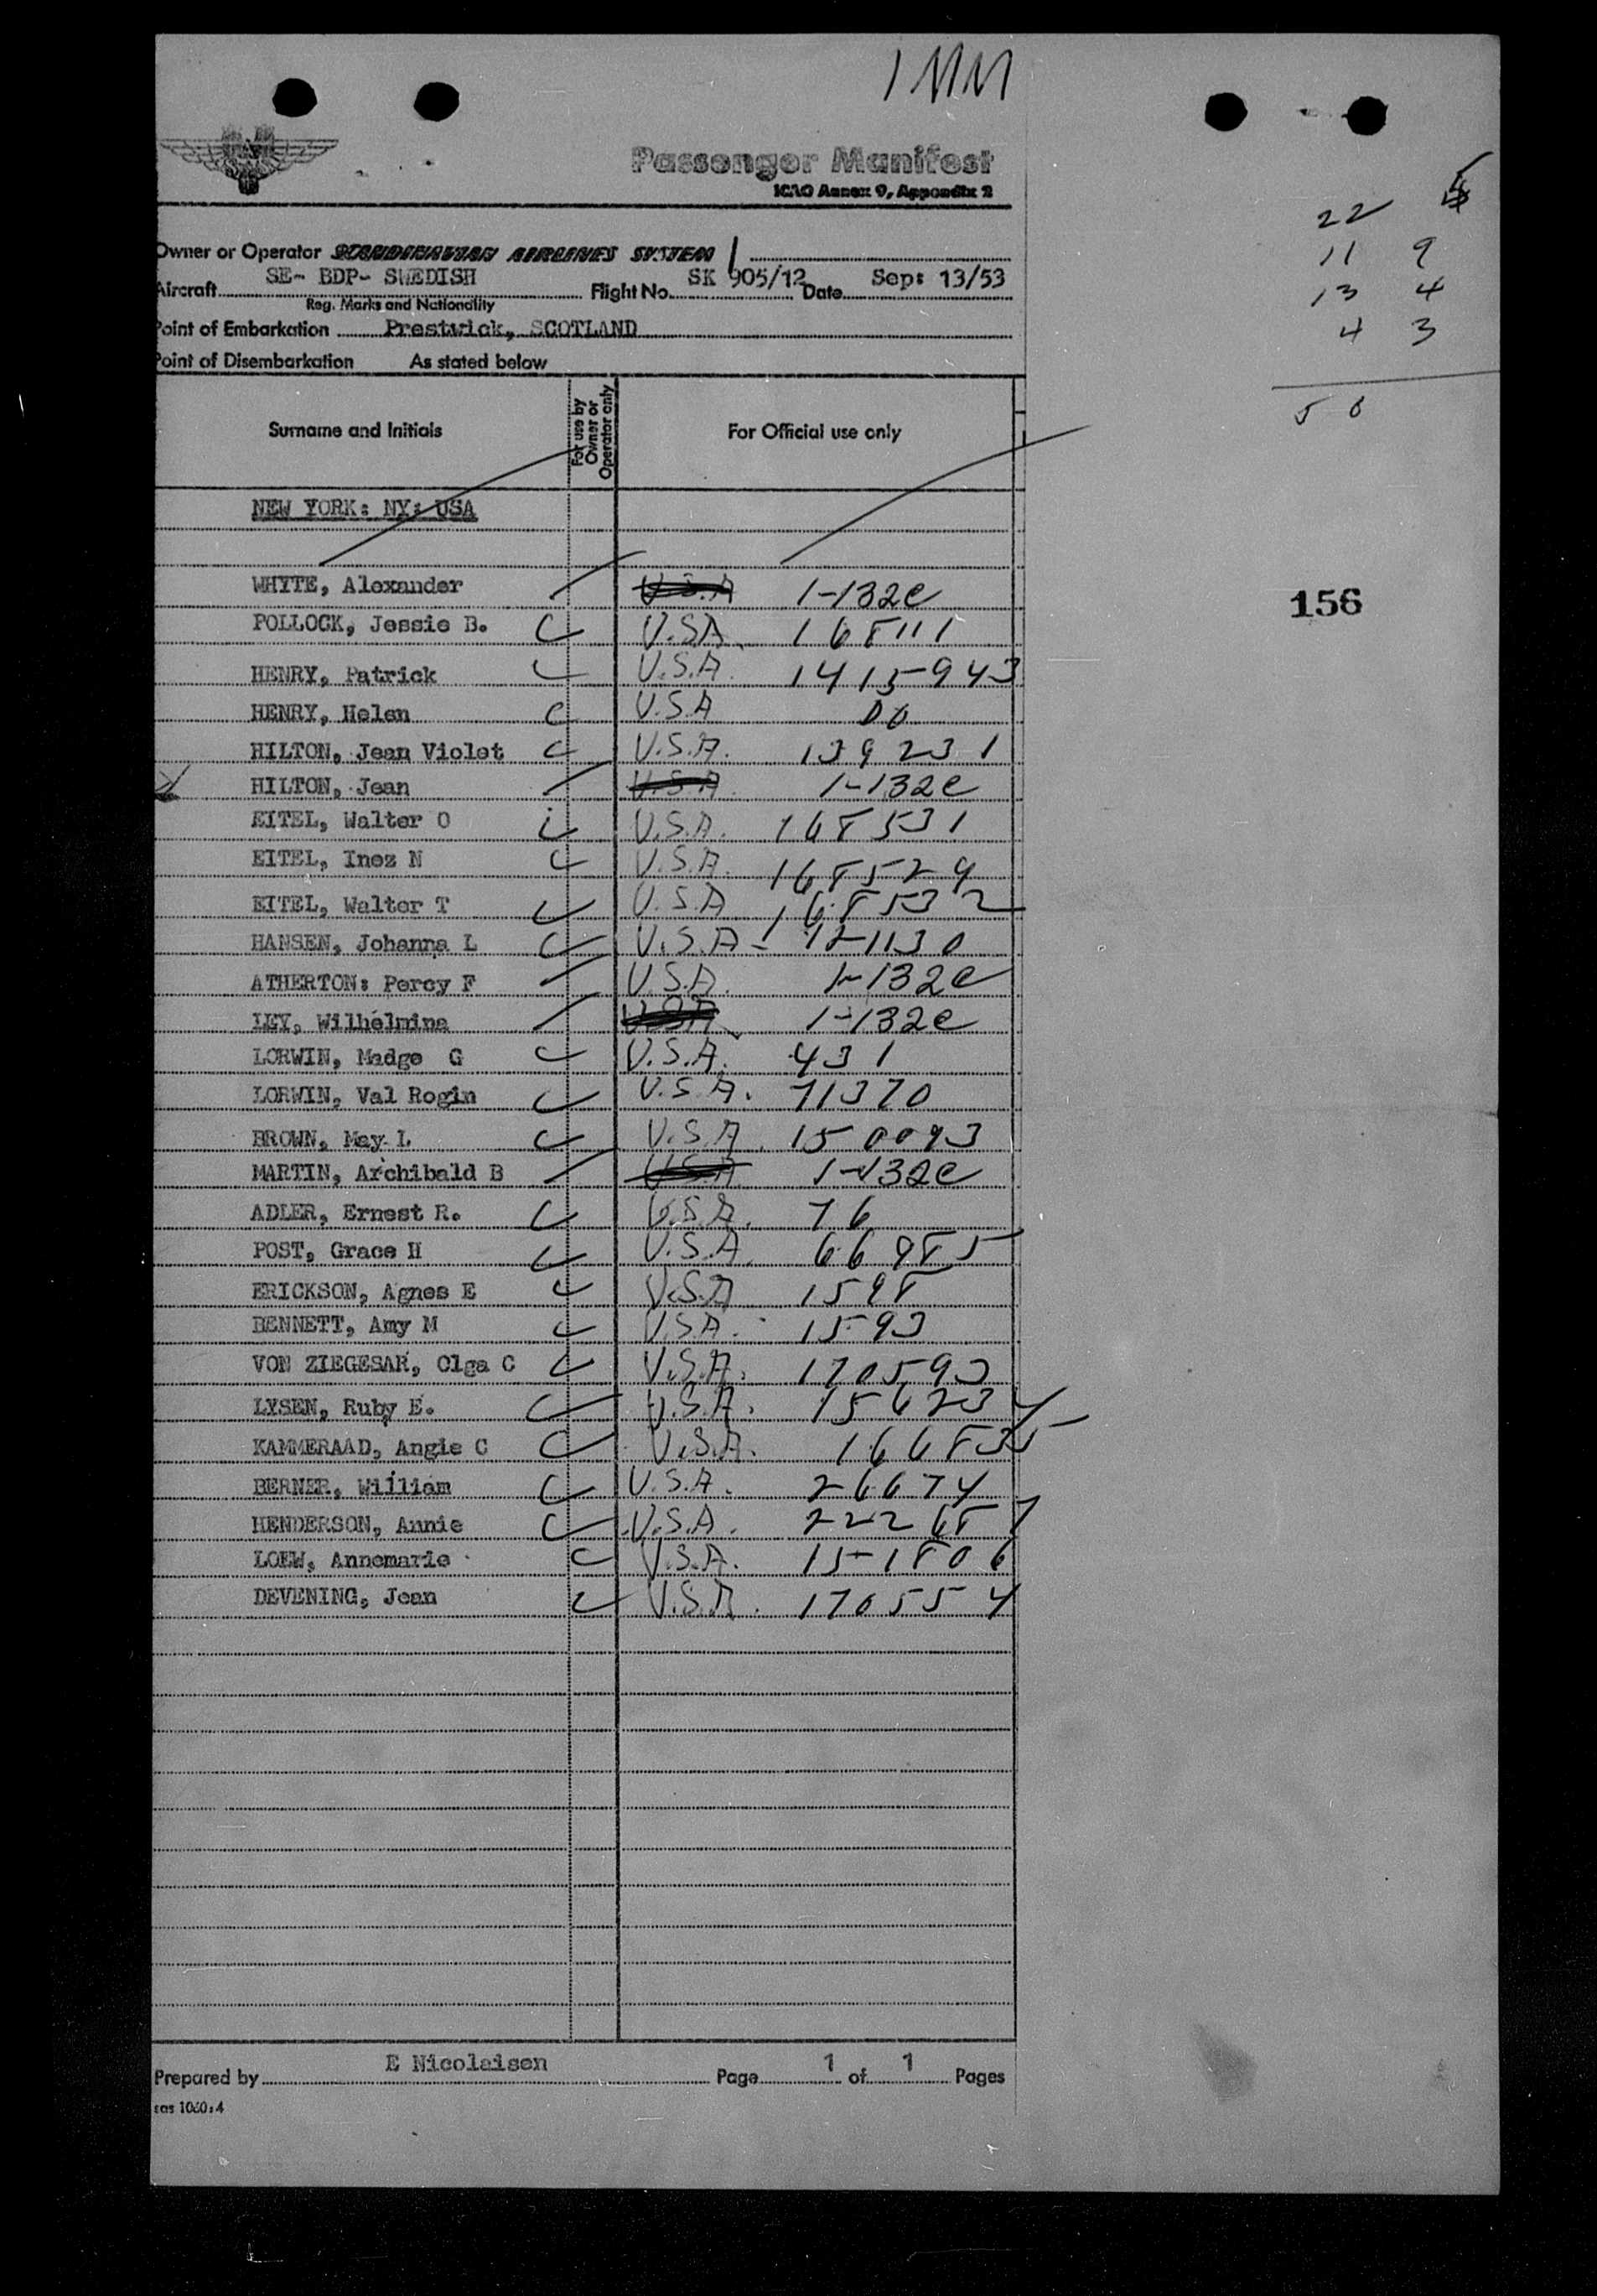 Passenger Manifest
ICAO Annex 9, Appendix 2
Owner or Operator SCANDINAVIAN AIRLINES SYSTEM
Aircraft SE- BDP- SWEDISH Flight No. SK 905/12 Date Sep: 13/53
Reg. Marks and Nationality
Point of Embarkation Prestwick, SCOTLAND
Point of Disembarkation As stated below
22
11 9
13 4
4 3
Surname and Initials For use by Owner or Operator only For Official use only
NEW YORK: NY: USA
156
WHYTE, Alexander U.S.A 1-132e
POLLOCK, Jessie B. U.S.A. 168111
HENRY, Patrick U.S.A. 1415943
HENRY, Helen U.S.A
HILTON, Jean Violet U.S.A. 139231
HILTON, Jean U.S.A. 1-132e
EITEL, Walter O U.S.A. 168531
EITEL, Inez N U.S.A. 168529
EITEL, Walter T U.S.A 168532
HANSEN, Johanna L U.S.A - 12-1130
ATHERTON: Percy F U.S.A. 1-132e
LEY, Wilhelmina U.S.A. 1-132e
LORWIN, Madge G U.S.A. 431
LORWIN, Val Rogin U.S.A. 71370
BROWN, May L U.S.A. 150093
MARTIN, Archibald B U.S.A 1-132e
ADLER, Ernest R. U.S.A. 76
POST, Grace H U.S.A. 66985
ERICKSON, Agnes E U.S.A 1598
BENNETT, Amy M U.S.A. 1593
VON ZIEGESAR, Olga C U.S.A. 170593
LYSEN, Ruby E. U.S.A. 156234
KAMMERAAD, Angie C U.S.A. 166835
BERNER, William U.S.A. 26674
HENDERSON, Annie U.S.A. 222687
LOEW, Annemarie U.S.A. 151806
DEVENING, Jean U.S.A. 170554
Prepared by E Nicolaisen Page 1 of 1 Pages
sas 1060:4